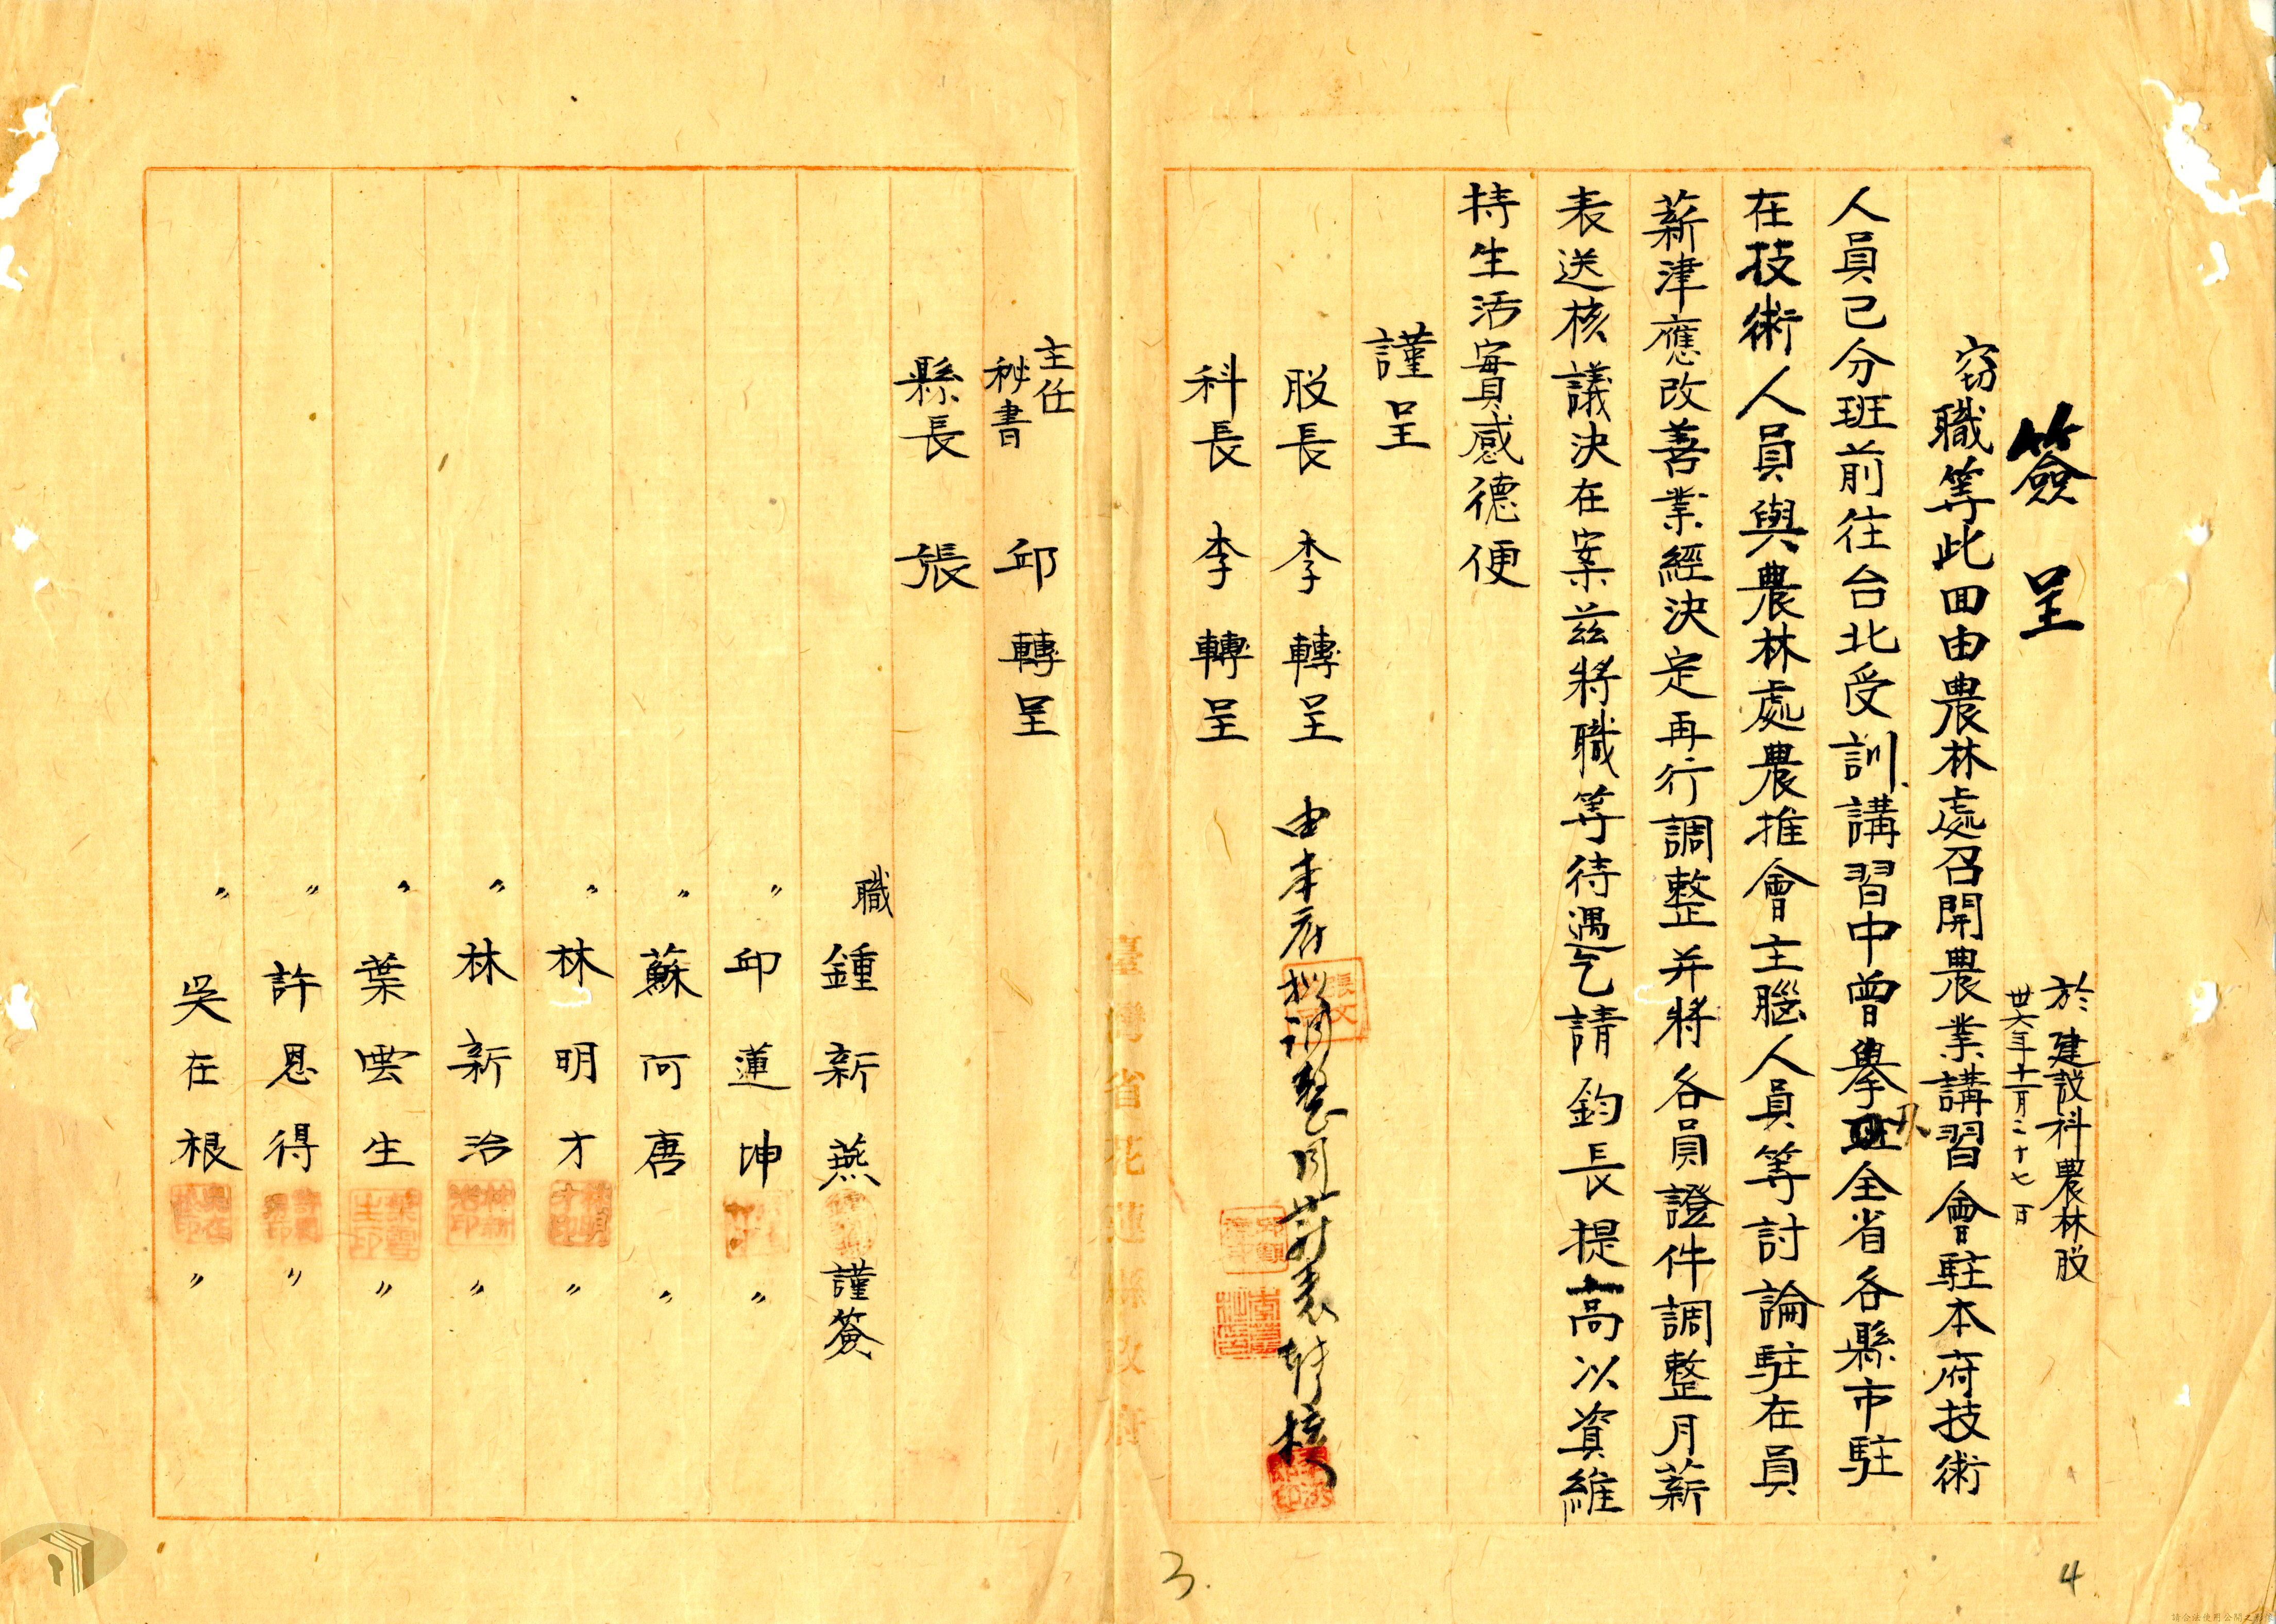 簽呈
於建設科農林股
卅六年十二月二十七日
竊職等此回由農林處召開農業講習會駐本府技術
人員已分班前往台北受訓講習中曾擧班全省各縣市駐
在技術人員與農林處農推會主腦人員等討論駐在員
薪津應改善業經決定再行調整并將各員證件調整月薪
表送核議決在案茲將職等待遇乞請鈞長提高以資維
持生活實感德便
謹呈
股長 李 轉呈
由本府擬調整月薪表轉核
科長 李 轉呈
主任秘書 邱 轉呈
縣長 張
職 鍾新燕 謹簽
〃 邱蓮坤 〃
〃 蘇阿唐 〃
〃 林明才 〃
〃 林新治 〃
〃 葉雲生 〃
〃 許恩得 〃
〃 吳在根 〃
臺灣省花蓮縣政府
3.
4